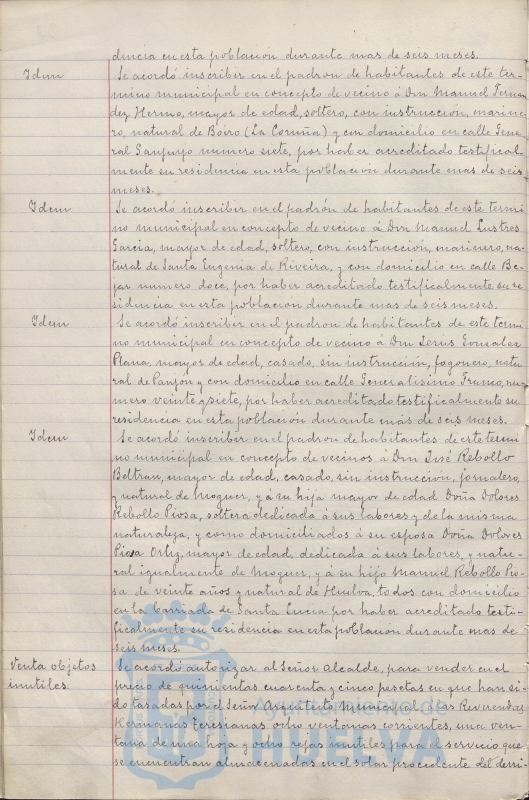 dencia en esta población durante mas de seis meses.
Idem
Se acordó inscribir en el padron de habitantes de este ter-
mino municipal en concepto de vecino á Don Manuel Fernan
dez Hermo, mayor de edad, soltero, con instrucción, marine-
ro, natural de Boiro (La Coruña) y con domicilio en calle Gene
ral Sanjurjo numero siete, por haber acreditado testifical-
mente su residencia en esta poblacion durante mas de seis
meses.
Idem
Se acordó inscribir en el padrón de habitantes de este termi
no municipal en concepto de vecino á Don Manuel Lustres
Garcia, mayor de edad, soltero, con instrucción, marinero, na-
tural de Santa Eugenia de Riveira, y con domicilio en calle Be-
jar numero doce, por haber acreditado testificalmente su re
sidencia en esta poblacion durante mas de seis meses.
Idem
Se acordó inscribir en el padron de habitantes de este termi
no municipal en concepto de vecino á Don Jesus Gonzalez
Plana, mayor de edad, casado, sin instrucción, fogonero, natu
ral de Panjon y con domicilio en calle Generalisimo Franco, nu-
mero veinte y siete, por haber acreditado testificalmente su
residencia en esta población durante más de seis meses.
Idem
Se acordó inscribir en el padron de habitantes de este termi
no municipal en concepto de vecinos á Don José Rebollo
Beltran, mayor de edad, casado, sin instrucción, jornalero,
y natural de Moguer, y á su hija mayor de edad Doña Dolores
Rebollo Piosa, soltera dedicada á sus labores y de la misma
naturaleza, y como domiciliados á su esposa Doña Dolores
Piosa Ortiz, mayor de edad, dedicada á sus labores, y natu-
ral igualmente de Moguer, y á su hijo Manuel Rebollo Pio-
sa de veinte años y natural de Huelva, todos con domicilio
en la barriada de Santa Lucia por haber acreditado testi-
ficalmente su residencia en esta poblacion durante mas de
seis meses.
Venta objetos
inutiles
Se acordó autorizar al Señor Alcalde, para vender en el
precio de quinientas cuarenta y cinco pesetas en que han si-
do tasadas por el Señor Arquitecto Municipal, á las Reverendas
Hermanas Teresianas ocho ventanas corrientes, una ven-
tana de una hoja y ocho rejas inutiles para el servicio que
se encuentran almacenadas en el solar procedente del derri-
Ayuntamiento de
HUELVA